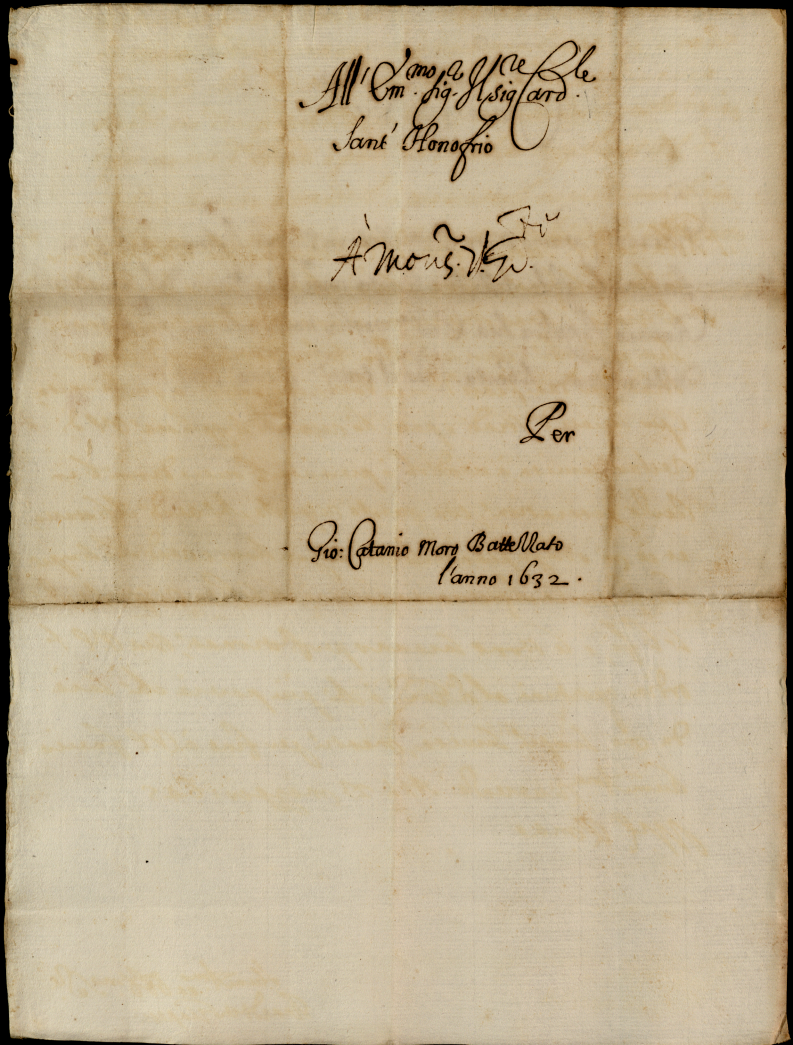 All' Em.mo Sig.r Il Sig.re Card.le
Sant' Honofrio
À Mons.r
Per
Gio: Catanio Moro Battezzato
l'anno 1632.